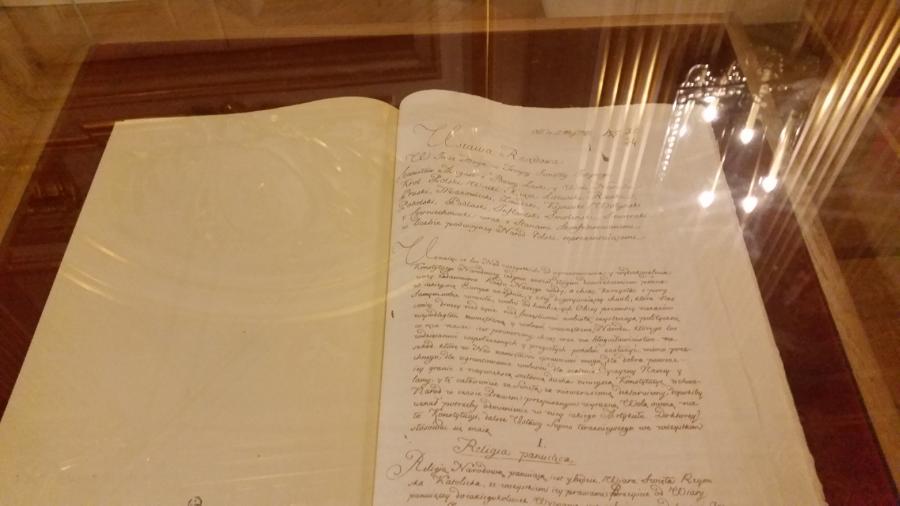 Ustawa Rządowa
W Imie Boga w Troycy Swiętey
Stanisław August z Bożey Łaski y Woli Narodu
Krol Polski Wielki Litewski Ruski
Pruski Mazowiecki Kijowski Wołynski
Podolski Podlaski Inflantski Smolenski Siewierski
y Czerniechowski wraz z Stanami Skonfederowanemi
w liczbie podwoyney Narod Polski reprezentuiącemi
Uznaiąc, iz los Nas wszystkich od ugruntowania y wydoskonalenia
Konstytucyi Narodowey iedynie zawisł, długim doswiadczeniem
wady, a chcąc korzystac z pory
w iakiey się Europa znayduie, y z tey dogorywaiącey chwili, ktora Nas
wolni od
drozey nad zycie nad egzystencyą polityczną
niepodległość zewnętrzną y wolność wewnętrzną Narodu, ktorego los
w ręce nasze iest powierzony, chcąc oraz na błogosławienstwo na
wdzięczność wspołczesnych y przyszłych pokolen zasłuzyc, mimo
szkod, ktore w Nas namiętności sprawowac mogą dla dobra
dla ugruntowania wolności, dla ocalenia Oyczyzny Naszey y
iey granic z naywiększą stałością ducha ninieyszą Konstytucyę uchwa-
lamy, y tę całkowicie za swiętą, za niewzruszoną deklaruiemy, dopokiby
Narod w czasie Prawem przepisanym wyrazną Wolą swoią nie
uznał potrzeby odmienienia w niey iakiego Artykułu. Do ktorey
to Konstytucyi dalsze Ustawy Seymu teraznieyszego we wszystkim
stosowac się maią.
I.
Religia panuiąca
Religią Narodową panuiącą iest y będzie Wiara Swięta Rzym-
ska Katolicka, ze wszystkiemi iey prawami, przeyscie od Wiary
panuiącey do iakiegokolwiek Wyznania